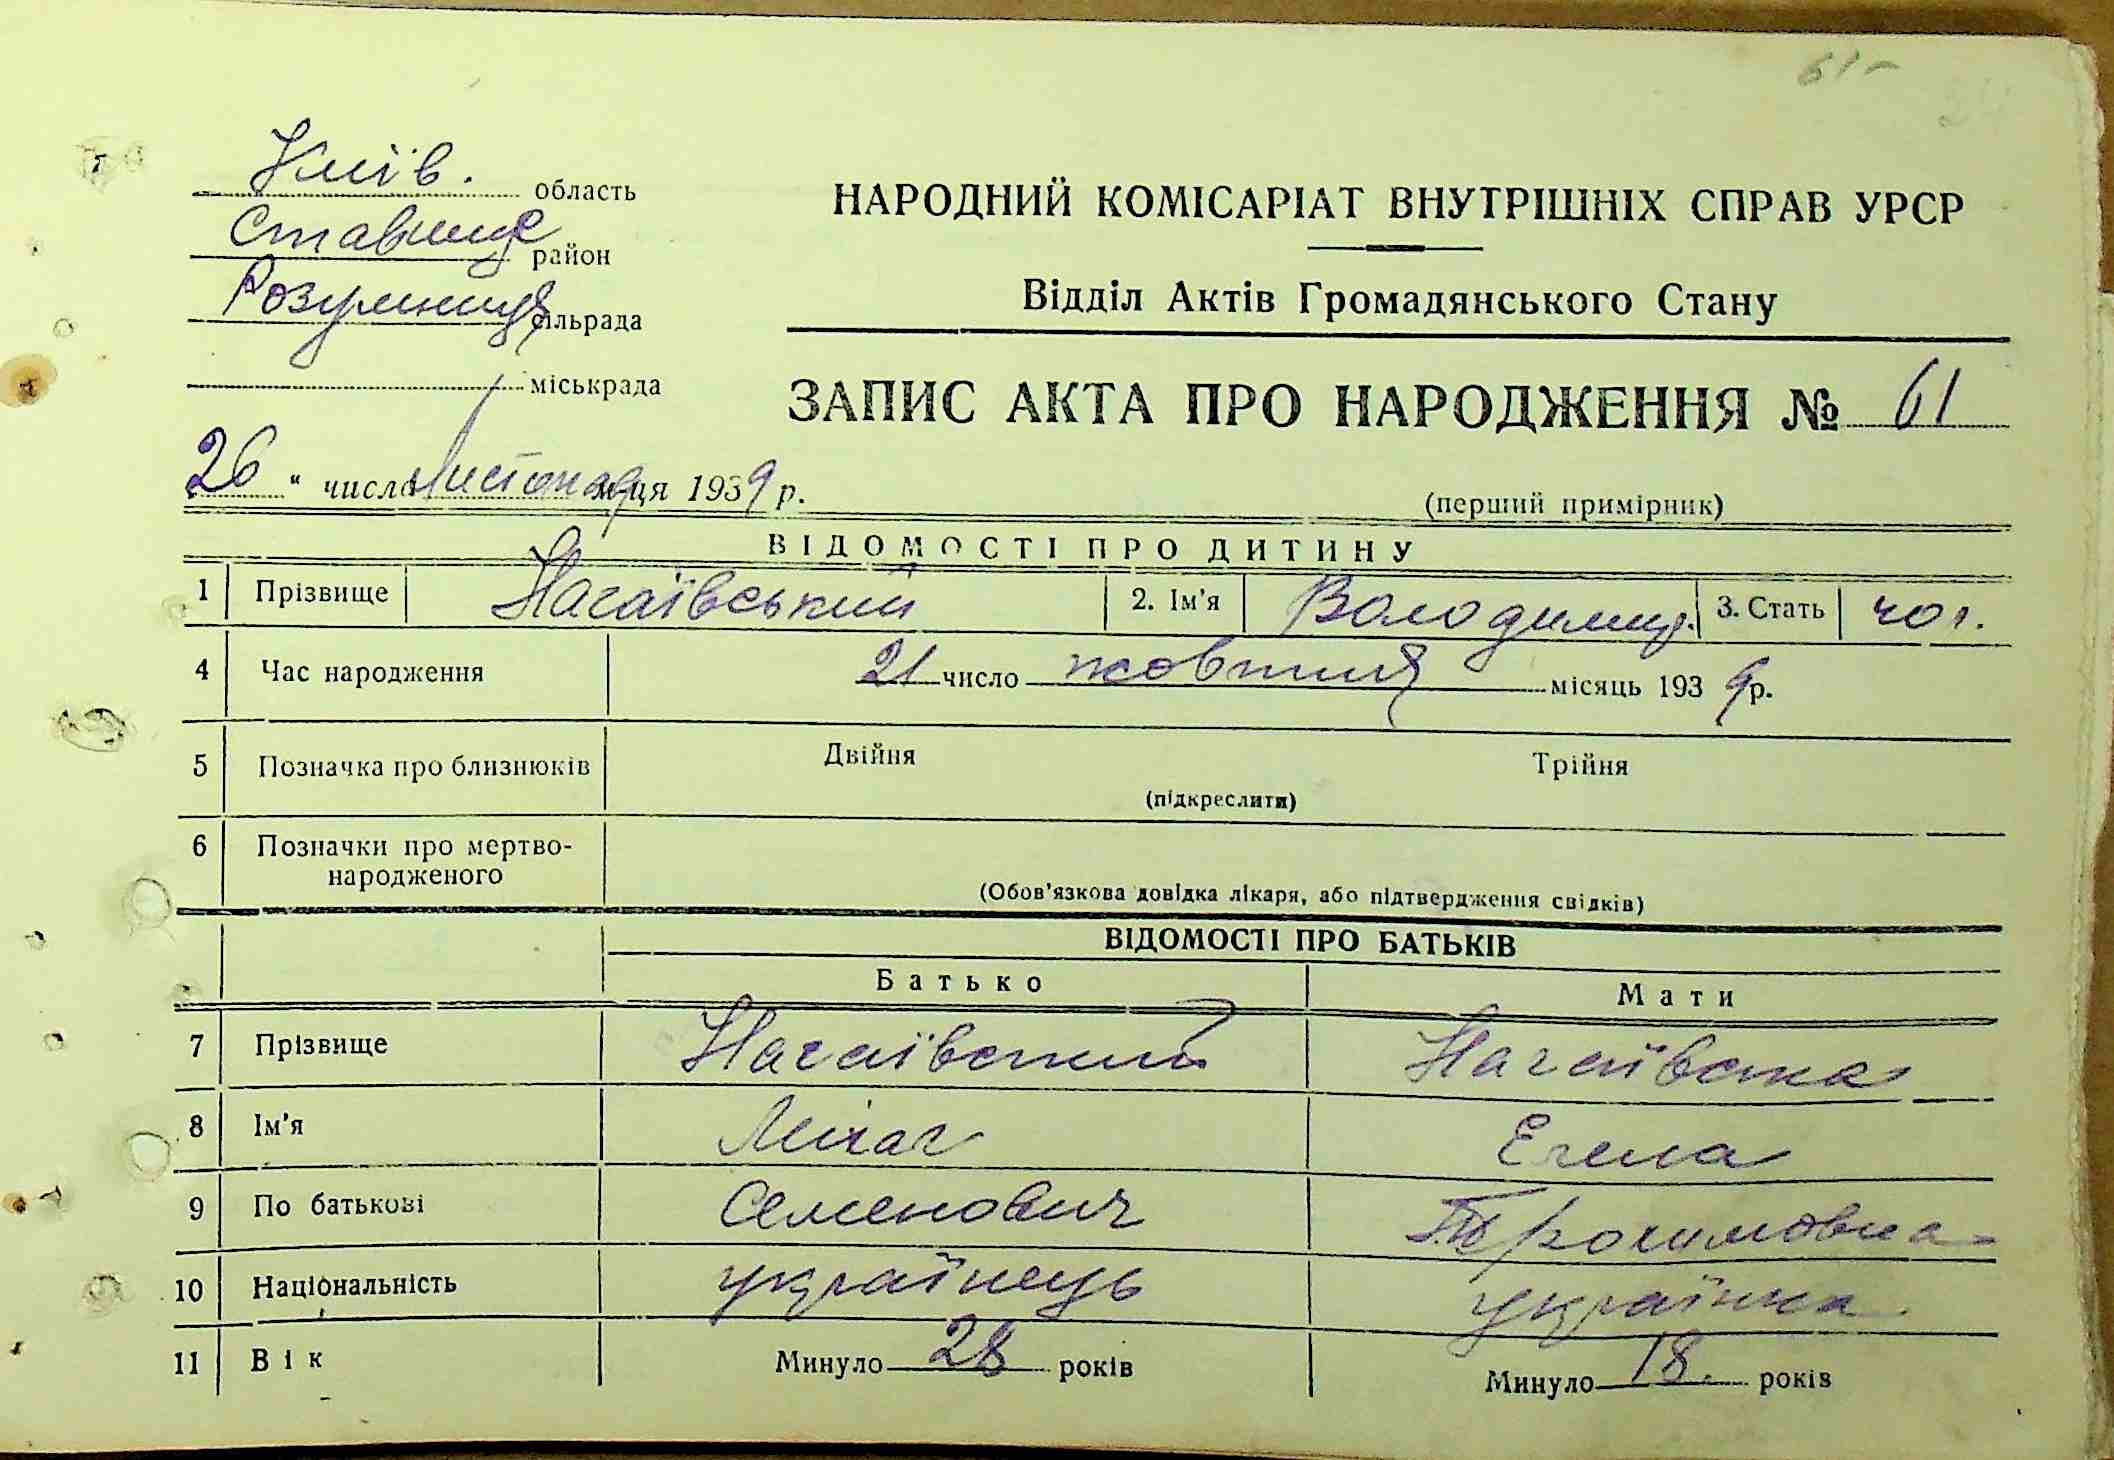 61-
Київ. область
Ставище район
Розумниця сільрада
міськрада
НАРОДНИЙ КОМІСАРІАТ ВНУТРІШНІХ СПРАВ УРСР
Відділ Актів Громадянського Стану
ЗАПИС АКТА ПРО НАРОДЖЕННЯ № 61
26 " числа листопад м-ця 1939 р.
(перший примірник)
ВІДОМОСТІ ПРО ДИТИНУ
1 Прізвище Нагаївський 2. Ім'я Володимир. 3. Стать чол.
4 Час народження 21 число жовтня місяць 1939 р.
5 Позначка про близнюків Двійня Трійня
(підкреслити)
6 Позначки про мертво-
народженого
(Обов'язкова довідка лікаря, або підтвердження свідків)
ВІДОМОСТІ ПРО БАТЬКІВ
Батько Мати
7 Прізвище Нагаївський Нагаївська
8 Ім'я
9 По батькові Семенович Трохимовна
10 Національність українець українка
11 Вік Минуло 28 років Минуло 18. років